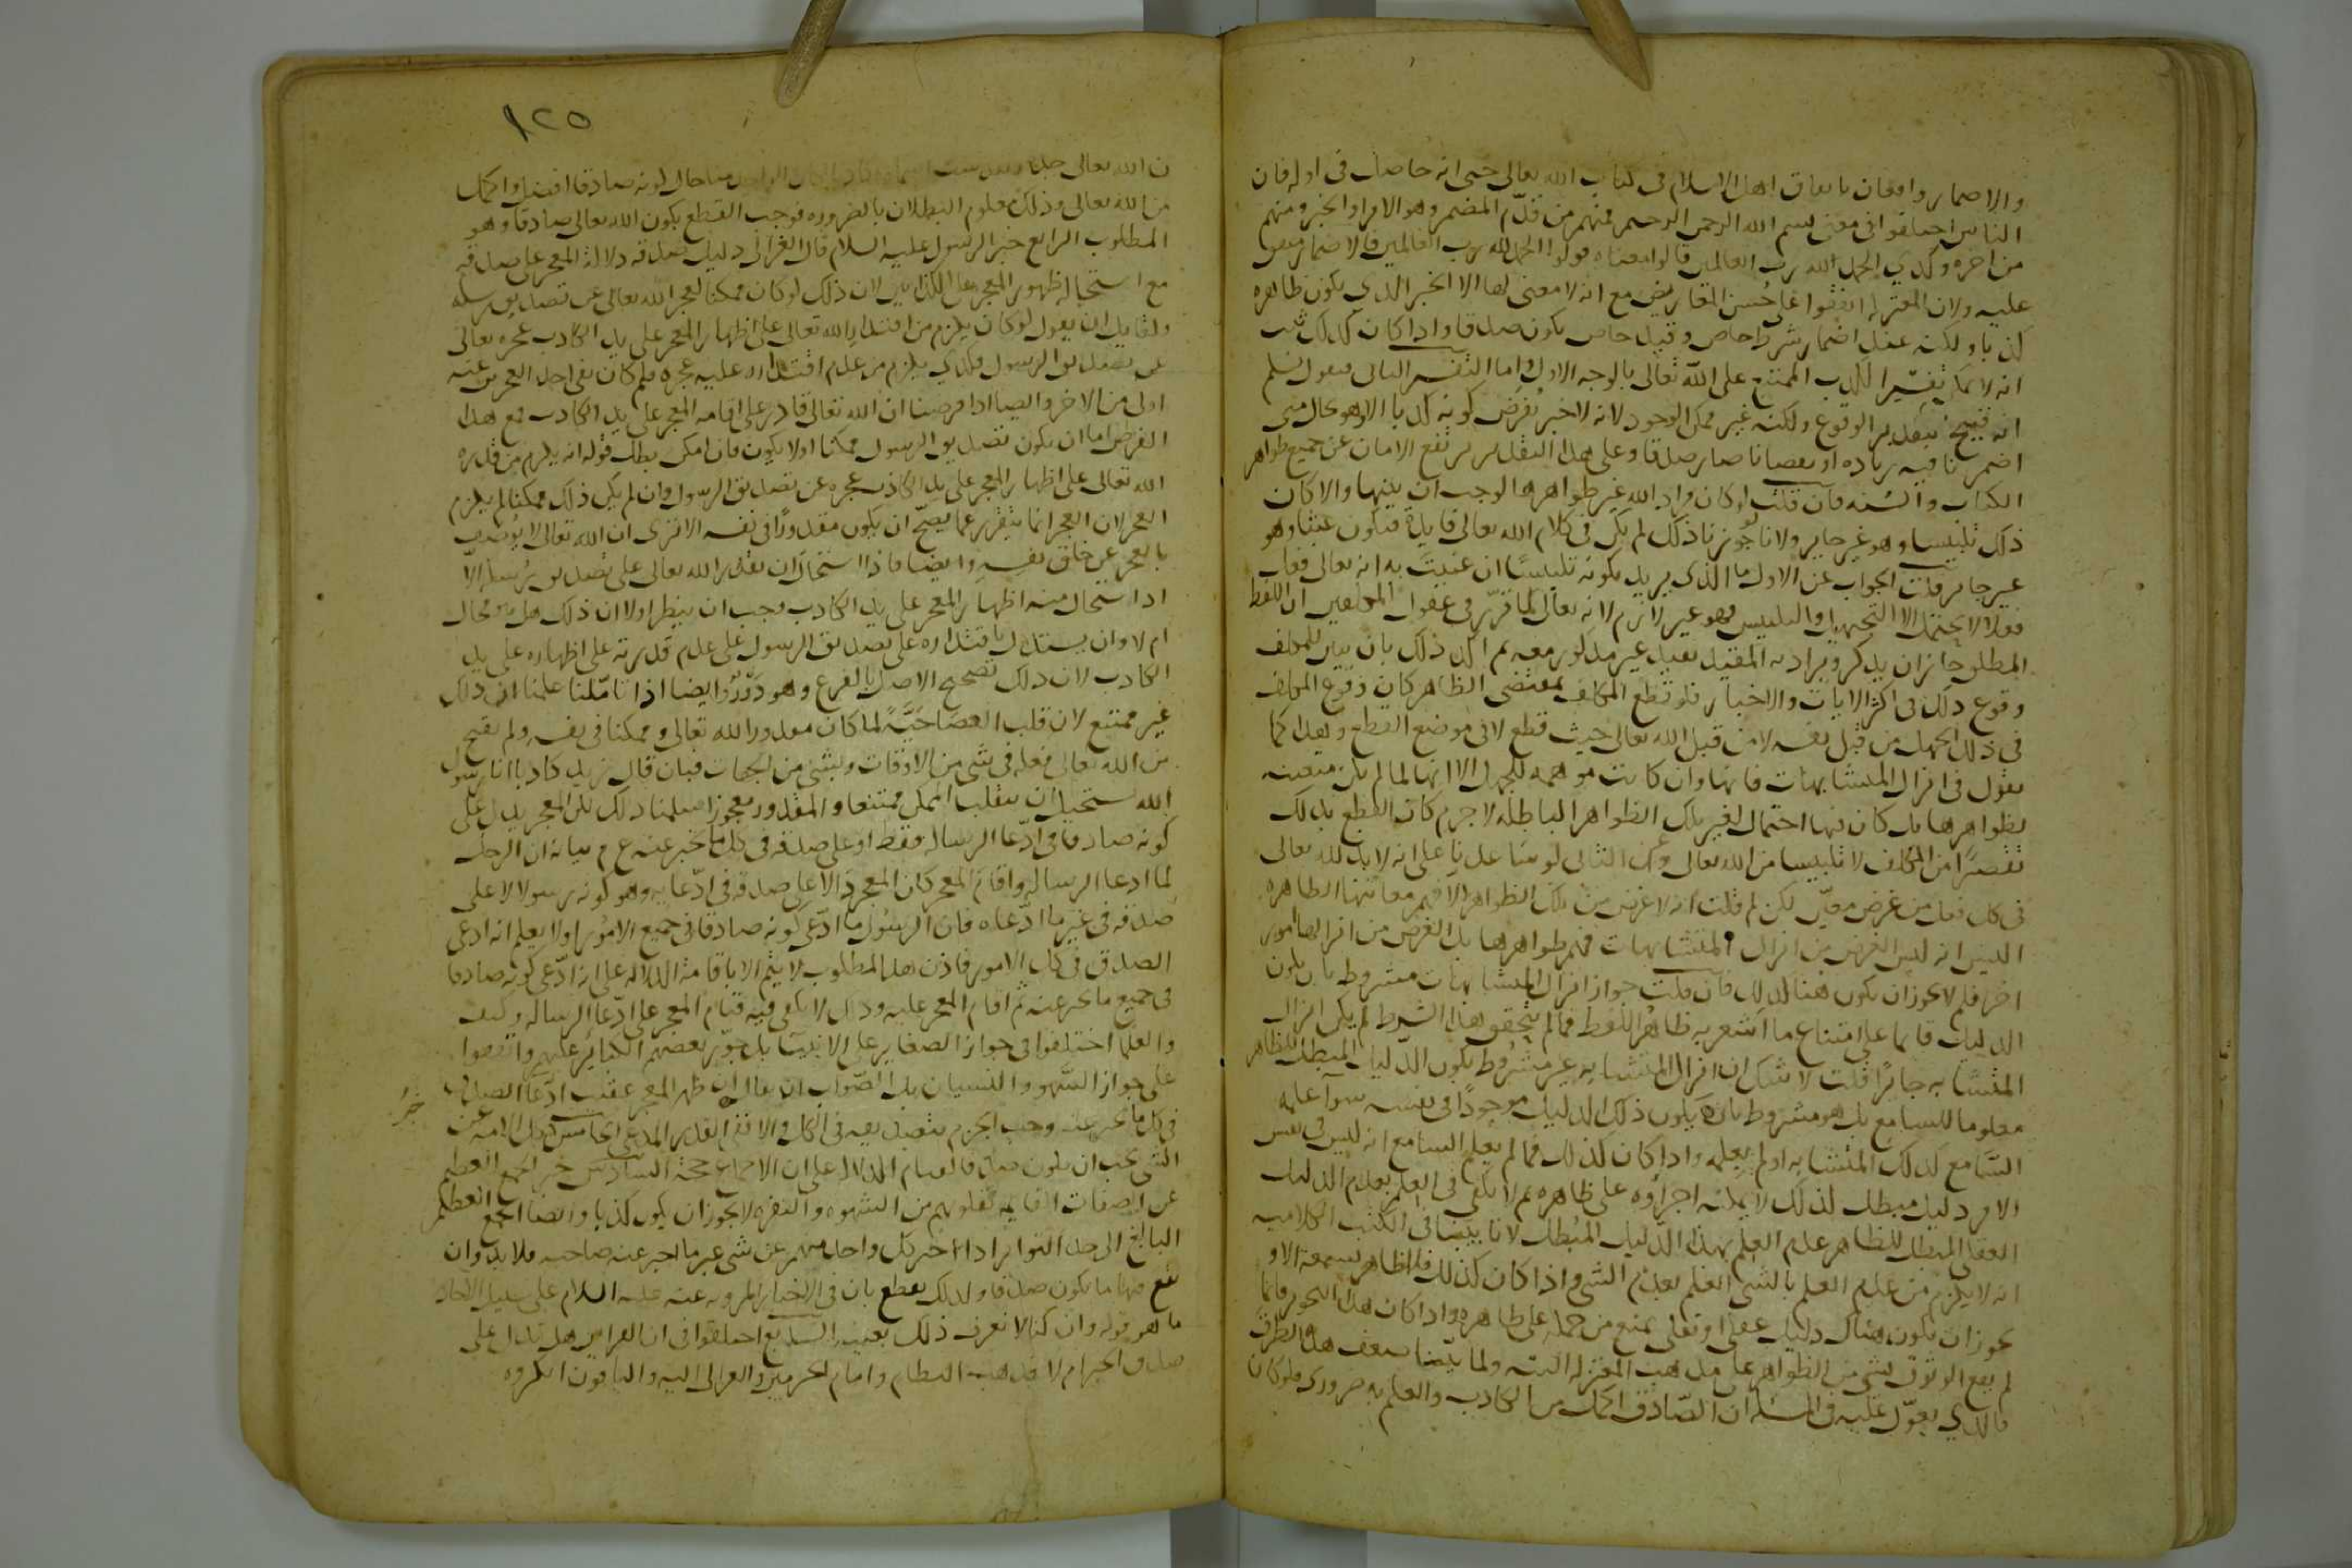 والاضمار واقعان باتفاق اهل الاسلام فى كتاب الله تعالى حتى انه حاصل فى اوله فان
الناس اختلفوا فى معنى بسم الله الرحمن الرحيم فمنهم من قدّم المضمر وهو الامر او الخبر ومنهم
من اخره وكذى الحمد لله رب العالمين قالوا معناه قولوا الحمد لله رب العالمين فالاضمار متفق
عليه ولان المعتزله اتفقوا على حُسن المعاريض مع انه لا معنى لها الا الخبر الذي يكون ظاهره
كذبا ولكنه عند اضمار شرط خاص وقيد خاص يكون صدقا واذا كان كذلك ثبت
انه لا يمكن تفسير الكذب الممتنع على الله تعالى بالوجه الاول واما التفسير الثانى فنقول نسلم
انه قبيح بتقدير الوقوع ولكنه غير ممكن الوجود لانه لا خبر يُفرض كونه كذبا الا وهو بحال متى
اضمرنا فيه زياده او نقصانا صار صدقا وعلى هذا التقدير يرتفع الامان عن جميع ظواهر
الكتاب والسُنه فان قلت لو كان مراد الله غير ظواهرها لوجب ان يبينها والا كان
ذلك تلبيسا وهو غير جايز ولانا لو جوّزنا ذلك لم يكن فى كلام الله تعالى فايدة فتكون عبثا وهو
غير جايز قلت الجواب عن الاول ما الذى يريد بكونه تلبيسًا ان عنيتَ به انه تعالى فعل
فعلا لا يحتمل الا التجهيل والتلبيس فهو غير لازم لانه تعالى لما قرّر فى عقول المكلفين ان اللفظ
المطلق جاز ان يذكر ويراد به المقيد بقيد غير مذكور معه ثم اكد ذلك بان بيّن للمكلف
وقوع ذلك فى اكثر الايات والاخبار فلو قطع المكلف بمقتضى الظاهر كان وقوع المكلف
فى ذلك الجهل من قِبَل نفسه لا من قبل الله تعالى حيث قطع لا فى موضع القطع وهذا كما
نقول فى انزال المتشابهات فانها وان كانت موهمه للجهل الا انها لما لم يكن متعينه
لظواهرها بل كان فيها احتمال لغير تلك الظواهر الباطله لا جرم كان القطع بذلك
تقصيرًا من المكلف لا تلبيسا من الله تعالى وعن الثانى لو ساعدنا على انه لا بد لله تعالى
فى كل فعل من غرض معيّن لكن لم قلت انه لا غرض من تلك الظواهر الا فهم معانيها الظاهره
اليس انه ليس الغرض من انزال المتشابهات فهم ظواهرها بل الغرض من انزالها امور
اخر فلم لا يجوز ان يكون هنا كذلك فان قلت جواز انزال المتشابهات مشروط بان يكون
الدليل قايما على امتناع ما اشعر به ظاهرُ اللفظ فما لم يتحقق هذا الشرط لم يكن انزال
المتشابه جائزًا قلت لا شك ان انزال المتشابه غير مشروط بكون الدليل المبطل للظاهر
معلوما للسامع بل هو مشروط بان يكون ذلك الدليل موجودًا فى نفسه سوآ علمه
السّامع كذلك المتشابه او لم يعلمه واذا كان كذلك فما لم يعلم السامع انه ليس فى نفس
الامر دليل مبطل لذلك لا يمكنه اجراؤه على ظاهره ثم لا يكفى فى العلم بعدم الدليل
العقلى المبطل للظاهر عدم العلم بهذا الدليل المُبطل لانا بيّنا فى الكتب الكلاميه
انه لا يلزم من عدم العلم بالشى العلم بعدم الشى واذا كان كذلك فلا ظاهر يسمعه الا و
يجوز ان يكون هناك دليل عقلى او نقلى يمنع من حمله على ظاهره واذا كان هذا التجويز قائما
لم يقع الوثوق بشى من الظواهر على مذهب المعتزله البته ولما بيّنا ضعف هذه الطرق
فالذي يعوّل عليه فى المسله ان الصّادق اكمل من الكاذب والعلم به ضرورى فلو كان
١٢٥
من الله تعالى وذلك معلوم البطلان بالضروره فوجب القطع بكون الله تعالى صادقا وهو
المطلوب الرابع خبر الرسول عليه السلام قال الغزالى دليل صدقه دلالة المعجز على صدقه
مع استحاله ظهور المعجز على الكذابين لان ذلك لو كان ممكنا لعجز الله تعالى عن تصديق رسله
ولقايل ان يقول لو كان يلزم من اقتدارِ الله تعالى على اظهار المعجز على يد الكاذب عجزه تعالى
عن تصديق الرسول فكذى يلزم من عدم اقتداره عليه عجزه فلم كان نفى احد العجزين عنه
اولى من الاخر وايضا اذا فرضنا ان الله تعالى قادر على اقامه المعجز على يد الكاذب فمع هذا
الفرض اما ان يكون تصديق الرسول ممكنا او لا يكون فان امكن بطل قوله انه يلزم من قدره
الله تعالى على اظهار المعجز على يد الكاذب عجزه عن تصديق الرسول وان لم يكن ذلك ممكنا لم يلزم
العجز لان العجز انما يتقرر عما يصحّ ان يكون مقدورًا فى نفسه الا ترى ان الله تعالى لا يُوصف
بالعجز عن خلق نفسه وايضا فاذا استحال ان نقدّر الله تعالى على تصديق رُسله الّا
اذا استحال منه اظهار المعجز على يد الكاذب وجب ان ينظر اولا ان ذلك هل هو محال
ام لا وان يستدل باقتداره على تصديق الرسول على عدم قدرته على اظهاره على يد
الكاذب لان ذلك تصحيح الاصل بالفرع وهو دَوْرٌ وايضا اذا تاملنا علمنا ان ذلك
غير ممتنع لان قلب العصا حَيّةً لما كان مقدور الله تعالى وممكنا فى نفسه ولم يقبح
من الله تعالى فعله فى شى من الاوقات وبشى من الجهات فبان قال زيد كاذبا انا رسول
الله يستحيل ان ينقلب الممكن ممتنعا والمقدور معجوزا سلمنا ذلك لكن المعجز يدل على
كونه صادقا فى ادّعا الرساله فقط او على صدقه فى كل ما يخبر عنه ع م بيانه ان الرجل
لما ادعا الرساله واقامَ المعجز كان المعجز دالا على صدقه فى ادّعايه وهو كونه رسولا لا على
صدقه فى غير ما ادّعاه فان الرسُول ما ادّعى كونه صادقا فى جميع الامُور او لا يعلم انه ادعى
الصدق فى كل الامور فاذن هذا المطلوب لا يتم الا باقامة الدلاله على انه ادّعى كونه صادقا
فى جميع ما يخبر عنه ثم اقام المعجز عليه وذلك لا يكفى فيه قيام المعجز على ادّعا الرساله وكيف
والعلما اختلفوا فى جواز الصغاير على الانبيا بل جوّز بعضهم الكبائر عليهم واتفقوا
على جواز السّهو والنسيان بل الصّواب ان يقال ان ظهر المعجز عقيب ادّعا الصدق
فى كل ما يخبر عنه وجب الجزم بتصديقه فى الكل والا ففى القدر المدعى الخامس كل الامه عن
الشى يجب ان يكون صدقا لقيام الدلاله على ان الاجماع حجة السادس خبر الجمع العظيم
خبَرُ
عن الصفات القايمه بقلوبهم من الشهوه والنفره لا يجوز ان يكون كذبا وايضا الجمع العظيم
البالغ الى حد التواتر اذا اخبر كل واحد منهم عن شى غير ما اخبر عنه صاحبه فلا بد وان
يقع فيها ما يكون صدقا ولذلك يقطع بان فى الاخبار المرويه عنه عليه السلام على سبيل الاحاد
ما هو قوله وان كنا لا نعرف ذلك بعينه السابع اختلفوا فى ان القراين هل تدل على
صدق الخبر ام لا فذهب النظام وامام الحرمين والغزالى اليه والباقون انكروه